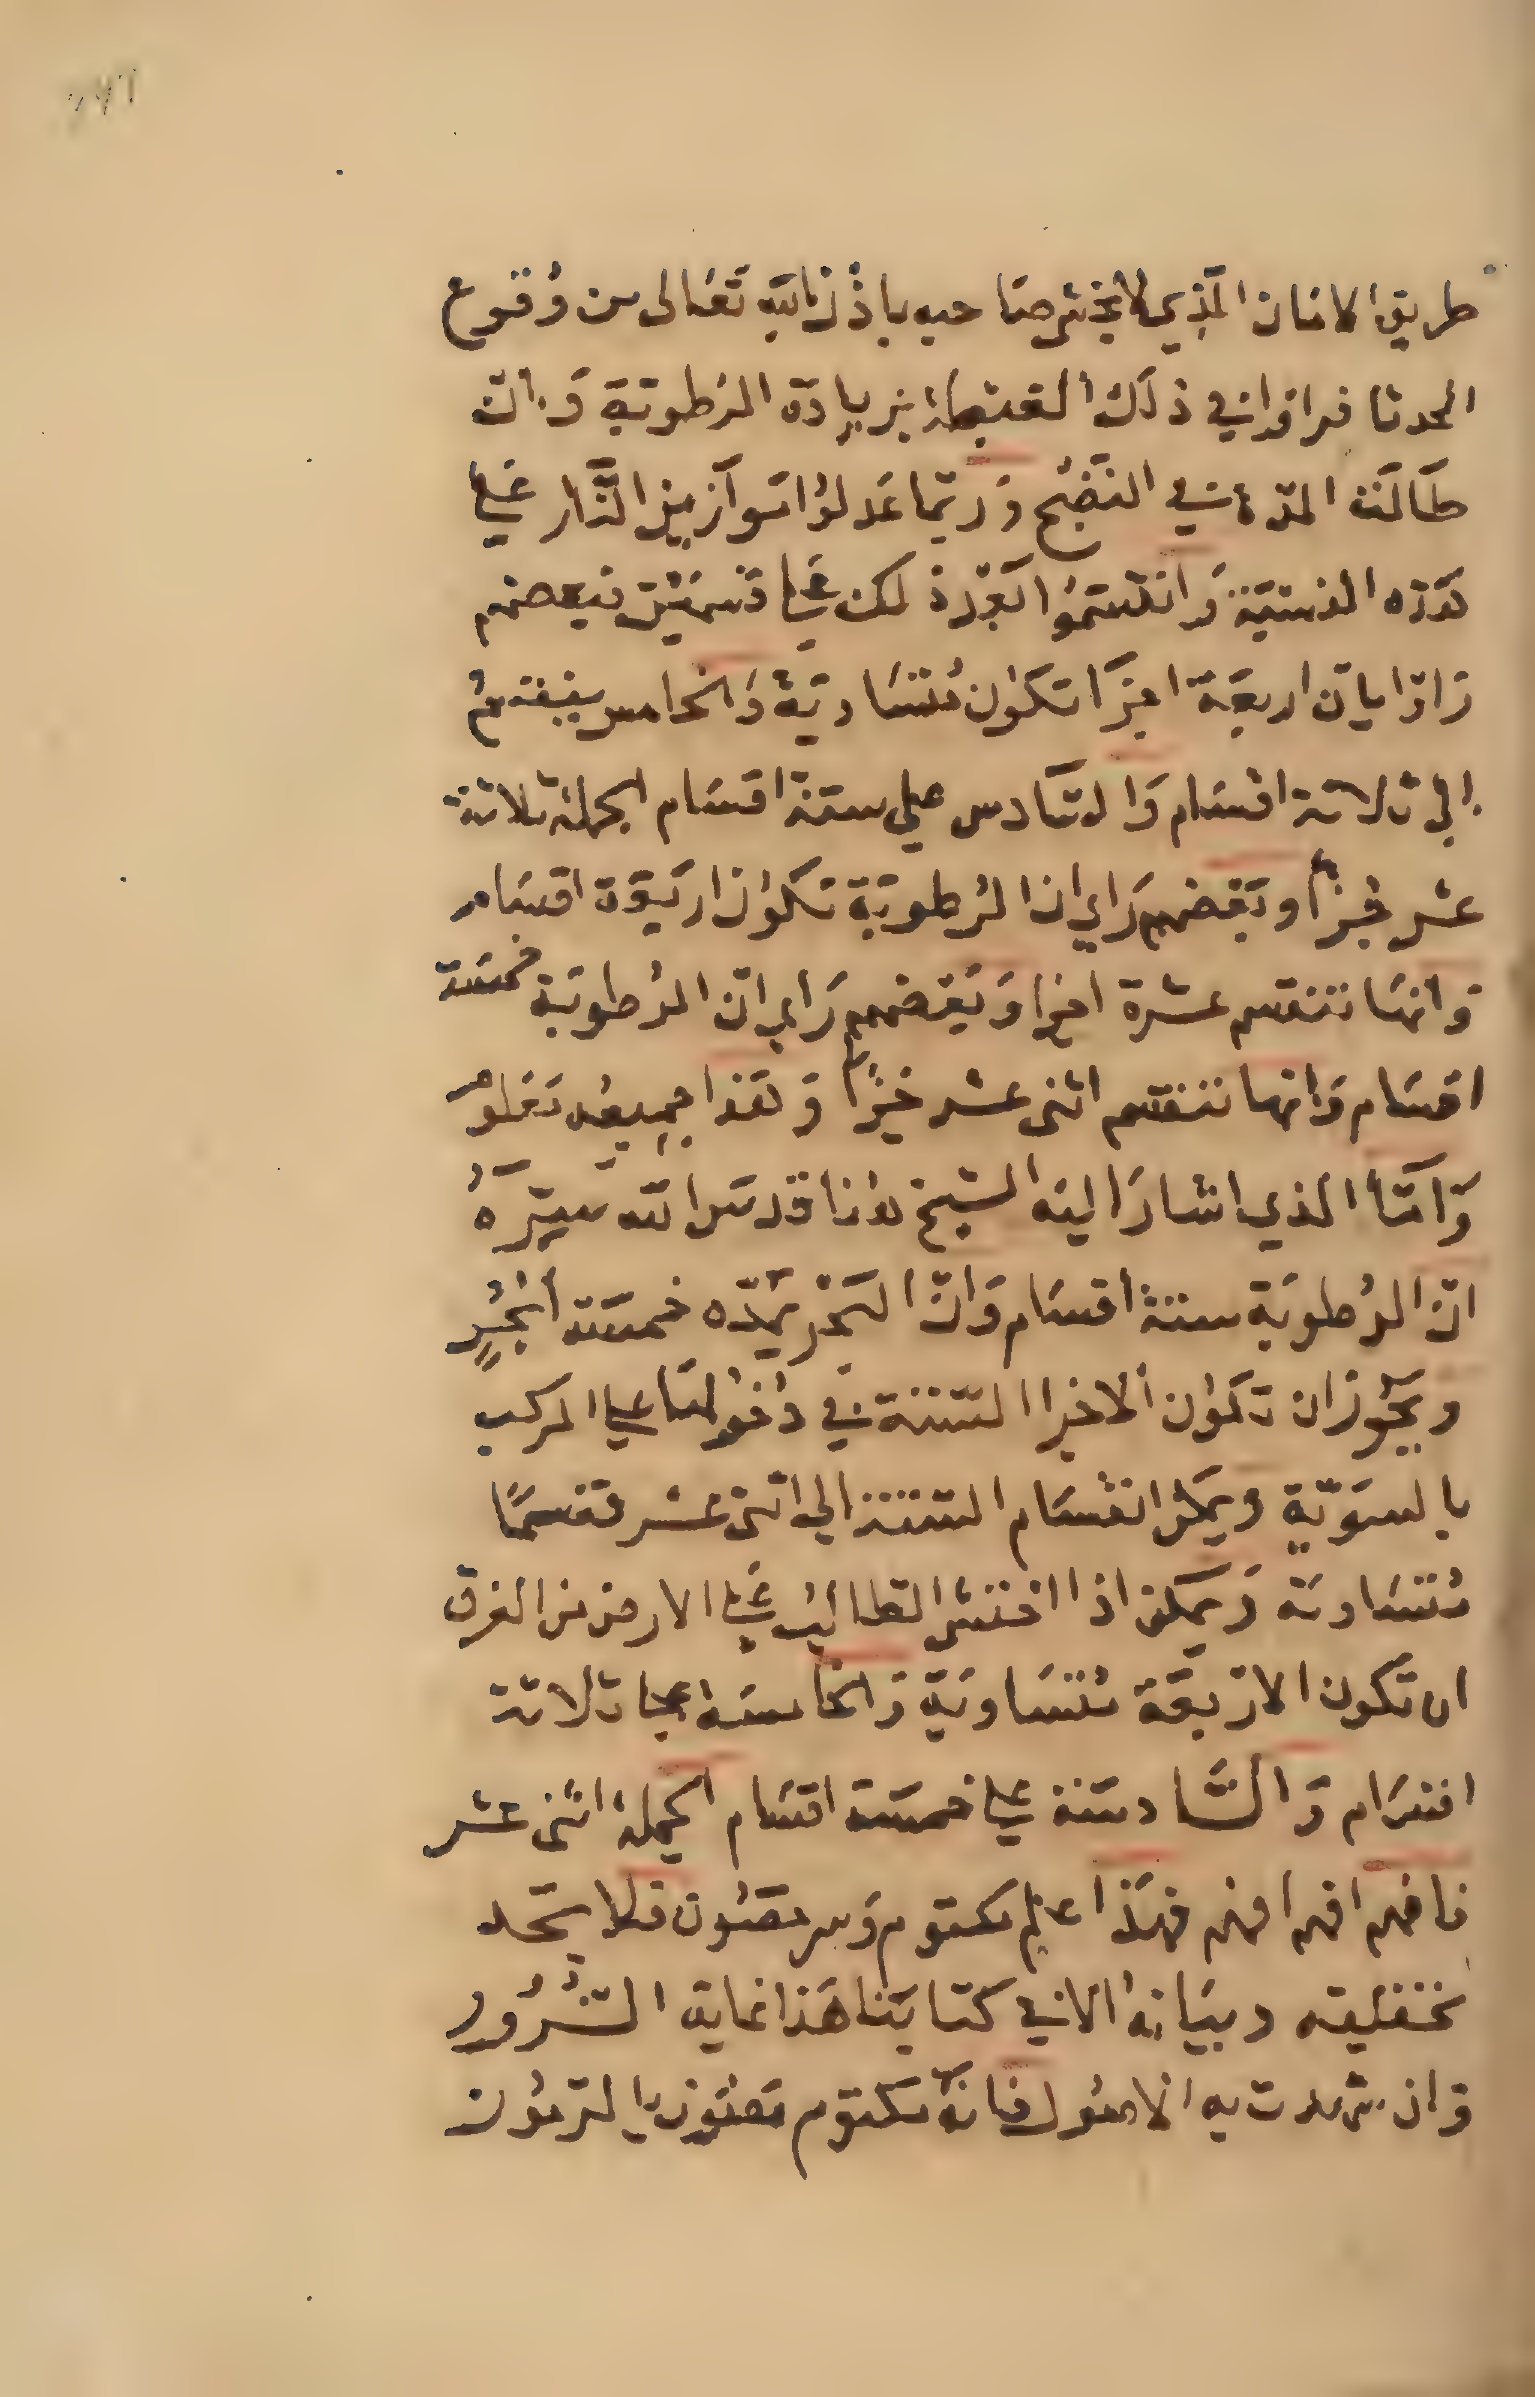 طريق الامان الذي لا يخشى صاحبه باذن الله تعالى من وقوع
الحدثا فرافوا في ذلك القبيل بزيادة الرطوبة وان
طالت المدة في النضج وربما عدلوا موازين النار على
هذه النسبة وانقسموا بعد ذلك على قسمين فبعضهم
راوا بان اربعة اجزا تكون متساوية والخامس ينقسم
الى ثلاثة اقسام والسادس على ستة اقسام الجملة ثلاثة
عشر جزأ وبعضهم راى ان الرطوبة تكون اربعة اقسام
وانها تنقسم عشرة اجزا وبعضهم راى ان الرطوبة خمسة
اقسام وانها تنقسم اثنى عشر جزأ وهذا جميعه معلوم
وأما الذي اشار اليه الشيخ هنا قدس الله سره
ان الرطوبة ستة أقسام وان البحر يمده خمسة أبحر
ويجوز ان تكون الاجزا الستة في دخولها على المركب
بالسوية ويمكن انقسام الستة الى اثنى عشر قسمًا
متساوية ويمكن اذا اختشى الطالب على الارض من الغرق
ان تكون الاربعة متساوية والخامسة على ثلاثة
اقسام والسادسة على خمسة اقسام الجملة اثنى عشر
فافهم افهم افهم فهذا علم مكتوم وسر مصون فلا تجد
تحقيقه وبيانه الا في كتابنا هذا غاية السرور
وان شهدت به الاصول فانه مكتوم مصون بالرموز